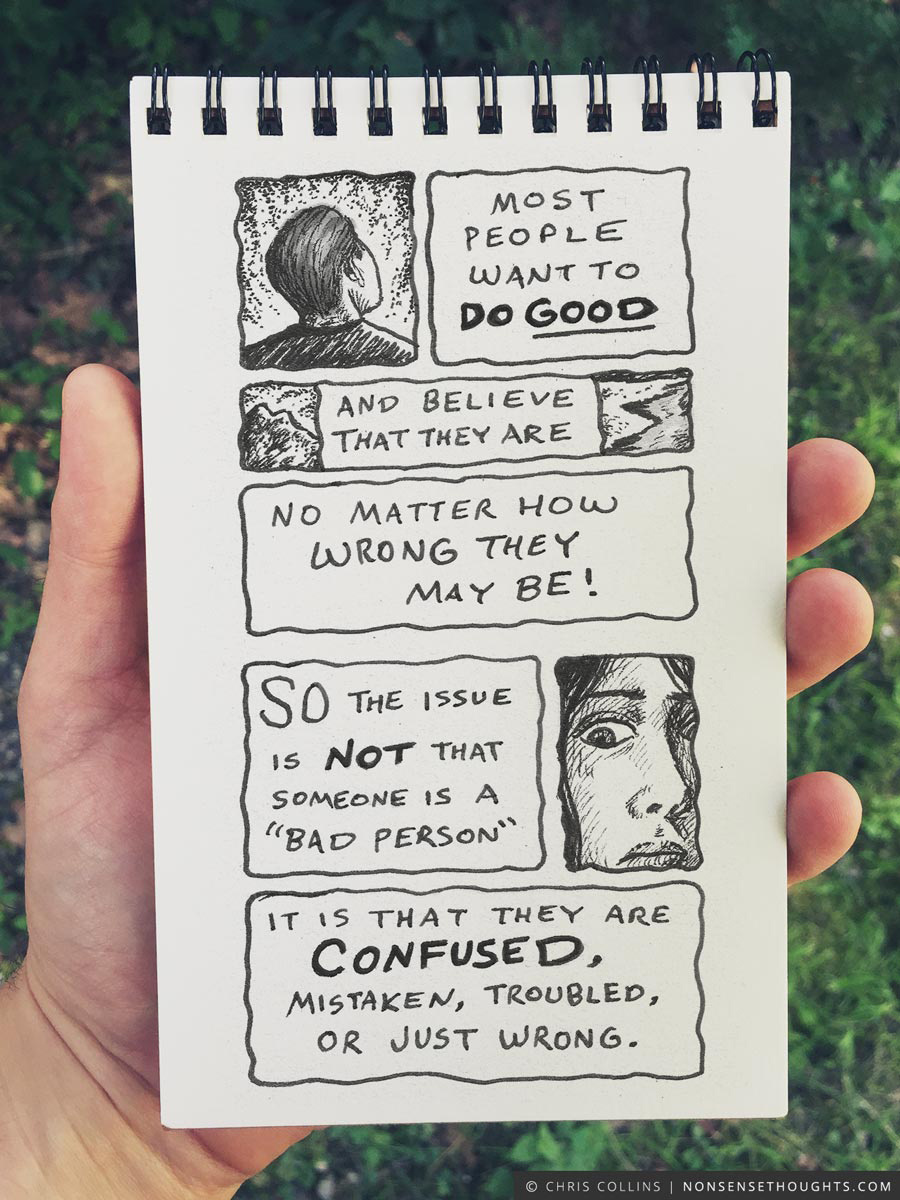 MOST
PEOPLE
WANT TO
DO GOOD
AND BELIEVE
THAT THEY ARE
NO MATTER HOW
WRONG THEY
MAY BE!
SO THE ISSUE
IS NOT THAT
SOMEONE IS A
"BAD PERSON"
IT IS THAT THEY ARE
CONFUSED,
MISTAKEN, TROUBLED,
OR JUST WRONG.
© CHRIS COLLINS | NONSENSETHOUGHTS.COM